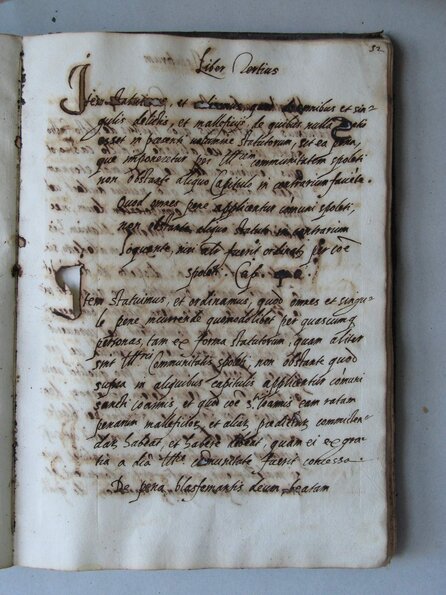 52
Liber Tertius
Item statuimus, et ordinamus quod omnibus et sin
gulis delictis, et malleficijs de quibus nulla
esset in presenti volumine statutorum, sit ea pena,
que imponeretur per Ill.am communitatem spoleti
non obstante aliquo Capitulo in contrarium
Quod omnes pene applicentur comuni spoleti,
non obstante aliquo statuto in contrarium
loquente, nisi alr fuerit ordinatu per coē
spoleti. Cap.
Item statuimus, et ordinamus, quod omnes et singu
le pene incurrende quomodolibet per quascunq
personas, tam ex forma statutorum, quam aliter
sint Ill.tris Communitatis spoleti, non obstante quod
supra in aliquibus capitulis applicentur comuni
sancti Ioannis, et quod coē S. Ioannis eam ratam
penarum malleficior, et alior, predictor,
habeat, et habere debeat, quam ei ex gra
tia a dicta Ill.e comunitate fuerit concessa.
De pena blasfemantis deum, beatam